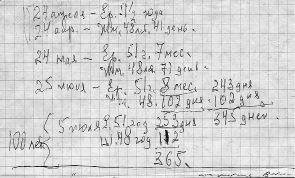 24 апреля - Ер. 51 1/2 года
24 апр. - Тт. 48 л. 41 день.
24 мая - Ер. 51 г. 7 мес.
Тт. 48 л. 71 день.
25 июня - Ер. 51 г. 8 мес. 243 дня
48. 102 дня + 102 дня
345 дней.
100 лет { 5 июля Ер. 51 год 253 дня
48 год 112
365.